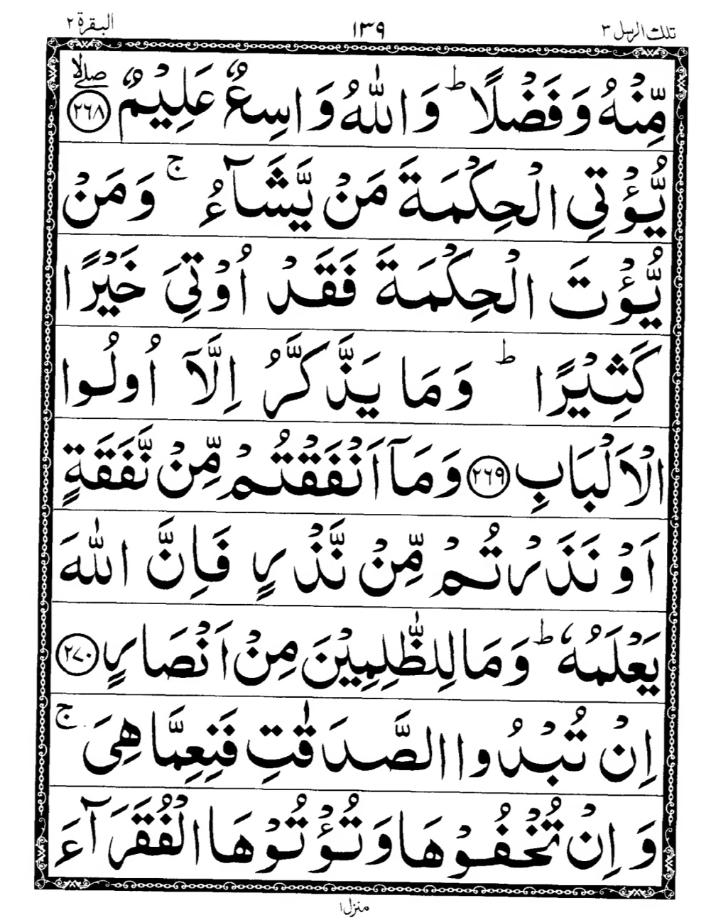 تلك الرسل ٣ ١٣٩ البقرة ٢
مِّنۡهُ وَفَضۡلًا ؕ وَاللّٰهُ وَاسِعٌ عَلِيۡمٌ ۙۖ ﴿۲۶۸﴾
يُّؤۡتِى الۡحِكۡمَةَ مَنۡ يَّشَآءُ ۚ وَمَنۡ
يُّؤۡتَ الۡحِكۡمَةَ فَقَدۡ اُوۡتِىَ خَيۡرًا
كَثِيۡرًا ؕ وَمَا يَذَّكَّرُ اِلَّاۤ اُولُوا
الۡاَلۡبَابِ ﴿۲۶۹﴾ وَمَاۤ اَنۡفَقۡتُمۡ مِّنۡ نَّفَقَةٍ
اَوۡ نَذَرۡتُمۡ مِّنۡ نَّذۡرٍ فَاِنَّ اللّٰهَ
يَعۡلَمُهٗ ؕ وَمَا لِلظّٰلِمِيۡنَ مِنۡ اَنۡصَارٍ ﴿۲۷۰﴾
اِنۡ تُبۡدُوا الصَّدَقٰتِ فَنِعِمَّا هِىَ ۚ
وَاِنۡ تُخۡفُوۡهَا وَتُؤۡتُوۡهَا الۡفُقَرَآءَ
منزل ١